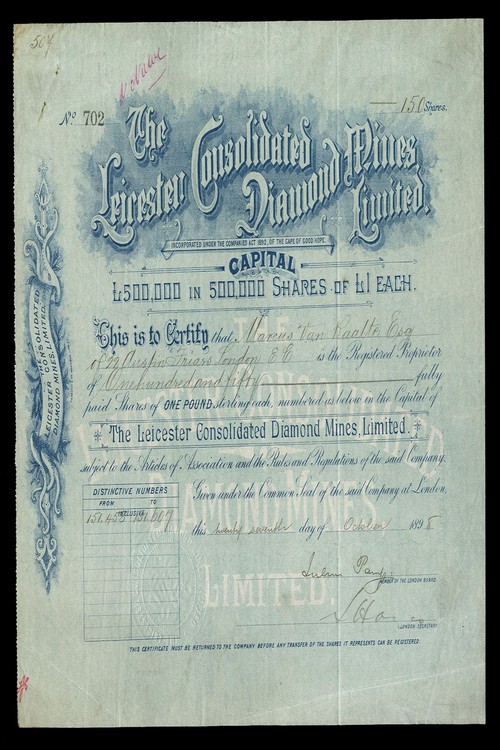 507
No. 702
150 Shares.
The
Leicester Consolidated
Diamond Mines
Limited.
INCORPORATED UNDER THE COMPANIES ACT 1892, OF THE CAPE OF GOOD HOPE.
CAPITAL
£500,000 IN 500,000 SHARES OF £1 EACH.
This is to Certify that Marcus Van Raalte Esq
of 22 Austin Friars London E.C. is the Registered Proprietor
of One hundred and fifty fully
paid Shares of ONE POUND sterling each, numbered as below in the Capital of
The Leicester Consolidated Diamond Mines, Limited.
subject to the Articles of Association and the Rules and Regulations of the said Company.
DISTINCTIVE NUMBERS
FROM INCLUSIVE TO
151,458 151,607
Given under the Common Seal of the said Company at London,
this twenty seventh day of October 1898
MEMBER OF THE LONDON BOARD.
LONDON SECRETARY
THIS CERTIFICATE MUST BE RETURNED TO THE COMPANY BEFORE ANY TRANSFER OF THE SHARES IT REPRESENTS CAN BE REGISTERED.
THE CONSOLIDATED
LEICESTER CONSOLIDATED
DIAMOND MINES, LIMITED.
DIAMOND MINES
LIMITED.